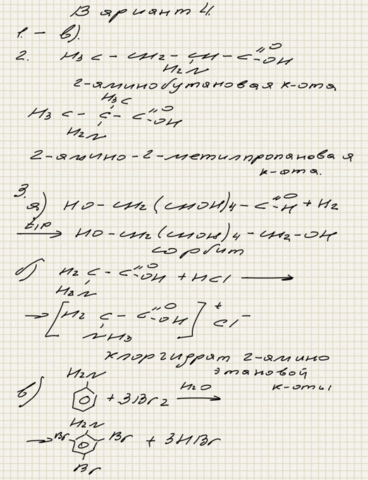 Вариант 4.
1. – в).
2. H3C – CH2 – CH – C =O –OH
H2N
2-аминобутановая к-ота
H3C
H3C – C – C =O –OH
H2N
2-амино-2-метилпропановая
к-ота.
3.
а) HO – CH2(CHOH)4 – C =O –H + H2
t,p → HO – CH2(CHOH)4 – CH2 – OH
сорбит
б) H2C – C =O –OH + HCl →
H2N
→ [H2C – C =O –OH]+ Cl–
NH3
хлоргидрат 2-амино
этановой
к-оты
H2N
в) + 3Br2 H2O →
H2N
→ Br Br + 3HBr
Br